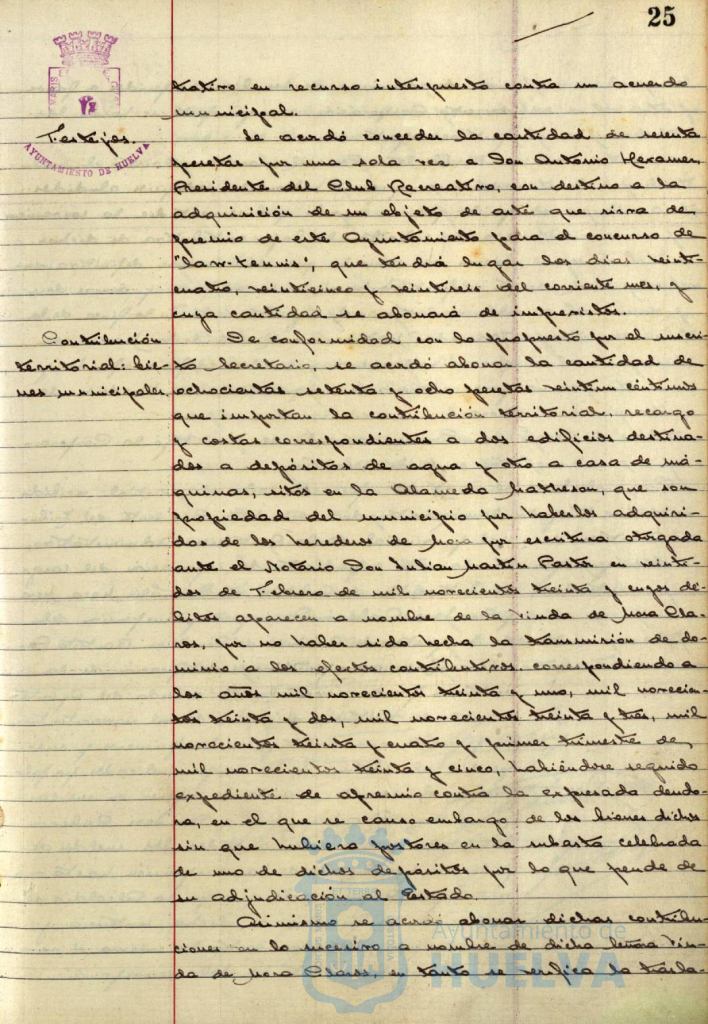 25
AYUNTAMIENTO DE HUELVA
Festejos.
trativo en recurso interpuesto contra un acuerdo
municipal.
Se acordó conceder la cantidad de sesenta
pesetas por una sola vez a Don Antonio Rexamer,
Presidente del Club Recreativo, con destino a la
adquisición de un objeto de arte que sirva de
premio de este Ayuntamiento para el concurso de
"law-tennis", que tendrá lugar los dias veinti-
cuatro, veinticinco y veintiseis del corriente mes, y
cuya cantidad se abonará de imprevistos.
Contribución
territorial: bie-
nes municipales.
De conformidad con lo propuesto por el inscri-
to Secretario, se acordó abonar la cantidad de
ochocientas setenta y ocho pesetas veintiun céntimos
que importan la contribución territorial, recargo
y costas correspondientes a dos edificios destina-
dos a depósitos de agua y otro a casa de má-
quinas, sitos en la Alameda Matheson, que son
propiedad del municipio por haberlos adquiri-
dos de los herederos de Mora por escritura otorgada
ante el Notario Don Julian Martin Pastor en veinti-
dos de Febrero de mil novecientos treinta y cuyos dé-
bitos aparecen a nombre de la Viuda de Mora Cla-
ros, por no haber sido hecha la transmisión de do-
minio a los efectos contributivos, correspondiendo a
los años mil novecientos treinta y uno, mil novecien-
tos treinta y dos, mil novecientos treinta y tres, mil
novecientos treinta y cuatro y primer trimestre de
mil novecientos treinta y cinco, habiéndose seguido
expediente de apremio contra la expresada deudo-
ra, en el que se causo embargo de los bienes dichos
sin que hubiera postores en la subasta celebrada
de uno de dichos depósitos por lo que pende de
su adjudicación al Estado.
Asimismo se acordó abonar dichas contribu-
ciones en lo sucesivo a nombre de dicha señora Viu-
da de Mora Claros, en tanto se verifica la trasla-
Ayuntamiento de
HUELVA